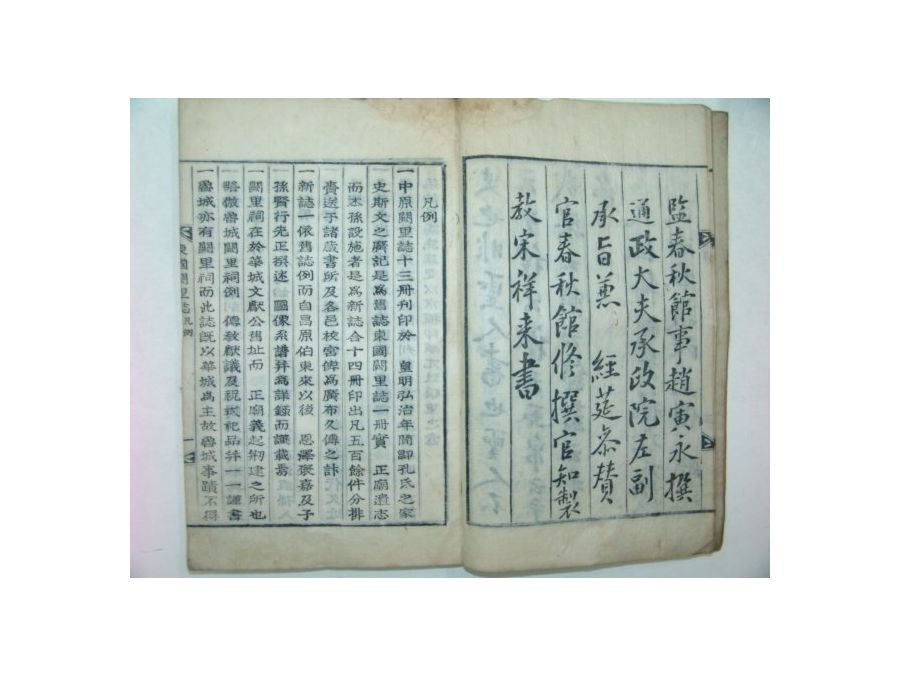 監春秋館事趙寅永撰
通政大夫承政院左副
承旨兼 經筵參贊
官春秋館修撰官知製
教宋祥来書
凡例
一中原闕里誌十三冊刊印於 皇明弘治年間卽孔氏之家
史斯文之廣記是爲舊誌東國闕里誌一冊實 正廟遺志
而本孫設施者是爲新誌合十四冊印出凡五百餘件分排
賫送于諸歲書所及各邑校宮俾爲廣布久傳之計
新誌一依舊誌例而自昌原伯東來以後 恩澤褒嘉及子
孫賢行先正撰述 圖像系譜幷爲詳錄而謹載焉
一闕里祠在於華城文獻公舊址而 正廟義起刱建之所也
略倣魯城闕里祠例 傳敎獻議及祝式祀品幷一一謹書
一魯城亦有闕里祠而此誌旣以華城爲主故魯城事蹟不得
東國闕里誌凡例
一